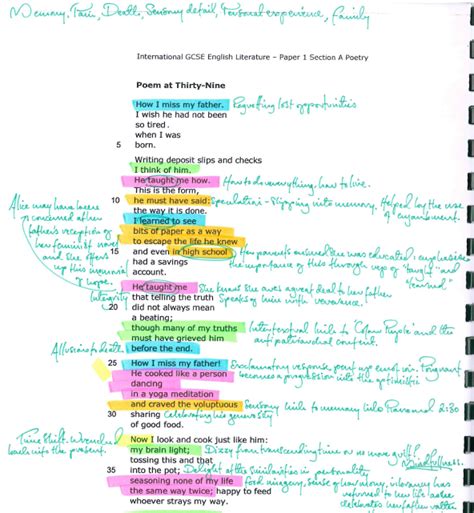 Memory, Pain, Death, Sensory detail, Personal experience, Family
International GCSE English Literature – Paper 1 Section A Poetry
Poem at Thirty-Nine
How I miss my father. Regretting lost opportunities
I wish he had not been
so tired
when I was
5 born.
Writing deposit slips and checks
I think of him.
He taught me how. How to do everything, how to live.
This is the form,
10 he must have said: Speculation - Slipping into memory. Helped by the use of enjambment.
the way it is done.
I learned to see
bits of paper as a way
to escape the life he knew
15 and even in high school
had a savings
account.
Alice may have been concerned at her father's reception of her
and she offers up this
of hope.
Her parents ensured she was educated: emphasises the importance of this through use of "taught" and "learned"
He taught me
Integrity
20 that telling the truth Speaks of him with
She knows she owes a great deal to her father
did not always mean
a beating;
though many of my truths
must have grieved him
Intertextual link to 'Colour Purple' and the anti patriarchal content.
Allusions to death before the end.
25 How I miss my father! Exclamatory response
He cooked like a person
dancing
in a yoga meditation
and craved the voluptuous Sensory link to memory link Piano
30 sharing Celebrating his generosity
of good food.
Time shift. Wrenched back into the present.
Now I look and cook just like him:
my brain light; Dizzy from
tossing this and that
Mindfulness.
35 into the pot; Delight at the similarities in personality
seasoning none of my life food imagery, sense of
the same way twice; happy to feed
whoever strays my way.
celebrates her father